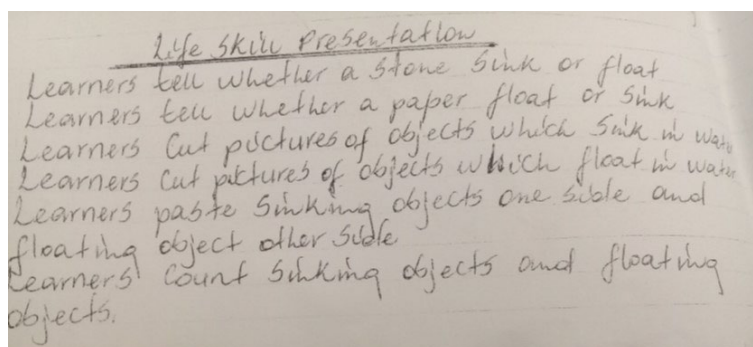 Life Skill Presentation
Learners tell whether a stone sink or float
Learners tell whether a paper float or sink
Learners Cut pictures of objects which sink in water
Learners Cut pictures of objects which float in water
Learners paste sinking objects one side and
floating object other side
Learners count sinking objects and floating
objects.